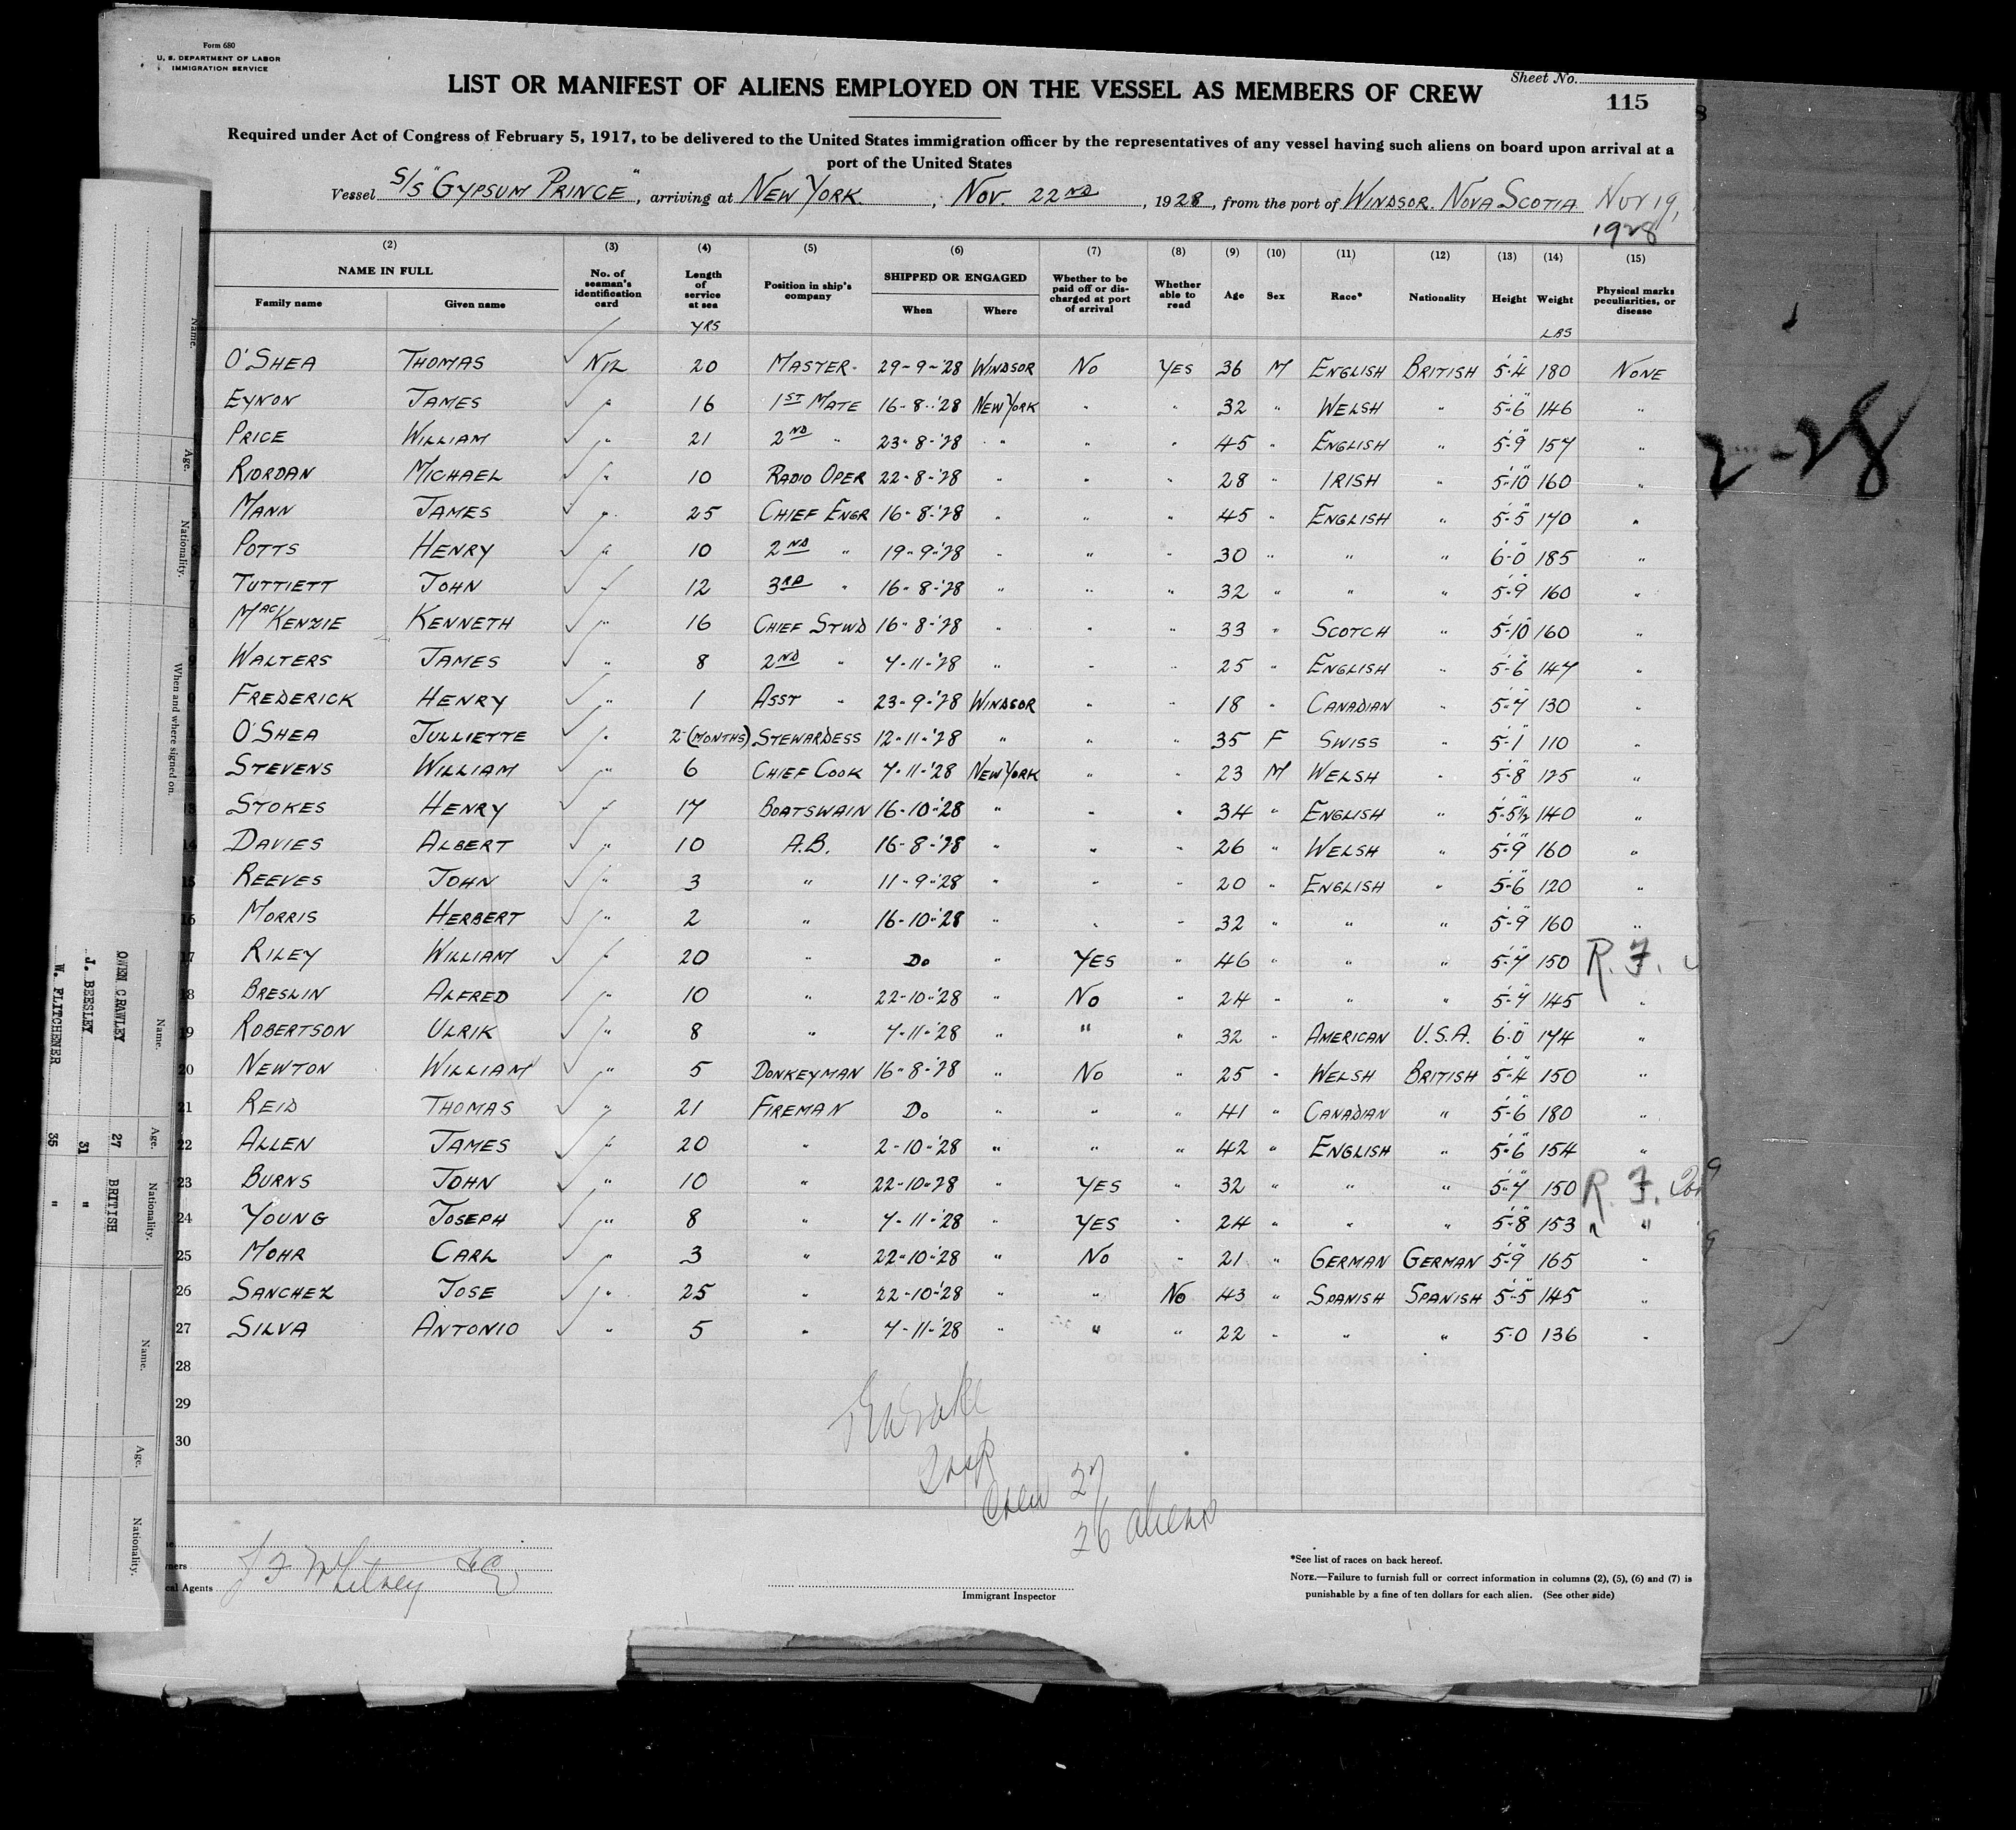 Form 680
U. S. DEPARTMENT OF LABOR
IMMIGRATION SERVICE
Sheet No.
115
LIST OR MANIFEST OF ALIENS EMPLOYED ON THE VESSEL AS MEMBERS OF CREW
Required under Act of Congress of February 5, 1917, to be delivered to the United States immigration officer by the representatives of any vessel having such aliens on board upon arrival at a
port of the United States
Vessel S/S "GYPSUM PRINCE", arriving at NEW YORK, NOV. 22ND, 1928, from the port of WINDSOR. NOVA SCOTIA Nov 19,
1928
(2) (3) (4) (5) (6) (7) (8) (9) (10) (11) (12) (13) (14) (15)
NAME IN FULL Family name Given name No. of seaman's identification card Length of service at sea Position in ship's company SHIPPED OR ENGAGED When Where Whether to be paid off or discharged at port of arrival Whether able to read Age Sex Race* Nationality Height Weight Physical marks peculiarities, or disease
YRS LBS
O'SHEA THOMAS NIL 20 MASTER 29-9-'28 WINDSOR NO YES 36 M ENGLISH BRITISH 5'-4" 180 NONE
EYNON JAMES " 16 1ST MATE 16-8-'28 NEW YORK " " 32 " WELSH " 5'-6" 146 "
PRICE WILLIAM " 21 2ND " 23-8-'28 " " " 45 " ENGLISH " 5'-9" 157 "
RIORDAN MICHAEL " 10 RADIO OPER 22-8-'28 " " " 28 " IRISH " 5'-10" 160 "
MANN JAMES " 25 CHIEF ENGR 16-8-'28 " " " 45 " ENGLISH " 5'-5" 170 "
POTTS HENRY " 10 2ND " 19-9-'28 " " " 30 " " " 6'-0" 185 "
7 TUTTIETT JOHN " 12 3RD " 16-8-'28 " " " 32 " " " 5'-9" 160 "
8 MACKENZIE KENNETH " 16 CHIEF STWD 16-8-'28 " " " 33 " SCOTCH " 5'-10" 160 "
9 WALTERS JAMES " 8 2ND " 7-11-'28 " " " 25 " ENGLISH " 5'-6" 147 "
0 FREDERICK HENRY " 1 ASST " 23-9-'28 WINDSOR " " 18 " CANADIAN " 5'-7" 130 "
1 O'SHEA JULLIETTE " 2 (MONTHS) STEWARDESS 12-11-'28 " " " 35 F SWISS " 5'-1" 110 "
2 STEVENS WILLIAM " 6 CHIEF COOK 7-11-'28 NEW YORK " " 23 M WELSH " 5'-8" 125 "
13 STOKES HENRY " 17 BOATSWAIN 16-10-'28 " " " 34 " ENGLISH " 5'-5½" 140 "
14 DAVIES ALBERT " 10 A.B. 16-8-'28 " " " 26 " WELSH " 5'-9" 160 "
15 REEVES JOHN " 3 " 11-9-'28 " " " 20 " ENGLISH " 5'-6" 120 "
16 MORRIS HERBERT " 2 " 16-10-'28 " " " 32 " " " 5'-9" 160 "
17 RILEY WILLIAM " 20 " DO " YES " 46 " " " 5'-7" 150 R. F.
18 BRESLIN ALFRED " 10 " 22-10-'28 " NO " 24 " " " 5'-7" 145 "
19 ROBERTSON ULRIK " 8 " 7-11-'28 " " " 32 " AMERICAN U.S.A. 6'-0" 174 "
20 NEWTON WILLIAM " 5 DONKEYMAN 16-8-'28 " NO " 25 " WELSH BRITISH 5'-4" 150 "
21 REID THOMAS " 21 FIREMAN DO " " " 41 " CANADIAN " 5'-6" 180 "
22 ALLEN JAMES " 20 " 2-10-'28 " " " 42 " ENGLISH " 5'-6" 154 "
23 BURNS JOHN " 10 " 22-10-'28 " YES " 32 " " " 5'-7" 150 R. F.
24 YOUNG JOSEPH " 8 " 7-11-'28 " YES " 24 " " " 5'-8" 153 " "
25 MOHR CARL " 3 " 22-10-'28 " NO " 21 " GERMAN GERMAN 5'-9" 165 "
26 SANCHEZ JOSE " 25 " 22-10-'28 " " NO 43 " SPANISH SPANISH 5'-5" 145 "
27 SILVA ANTONIO " 5 " 7-11-'28 " " " 22 " " " 5-0 136 "
28
29
30
Crew 27
26 aliens
J F Whitney & Co
Immigrant Inspector
*See list of races on back hereof.
NOTE.—Failure to furnish full or correct information in columns (2), (5), (6) and (7) is
punishable by a fine of ten dollars for each alien. (See other side)
2-28
Name. Age. Nationality. When and where signed on.
Name. Age. Nationality.
OWEN CRAWLEY 27 BRITISH
J. BEESLEY 31 "
W. FLITCHENER 35 "
Name. Age. Nationality.